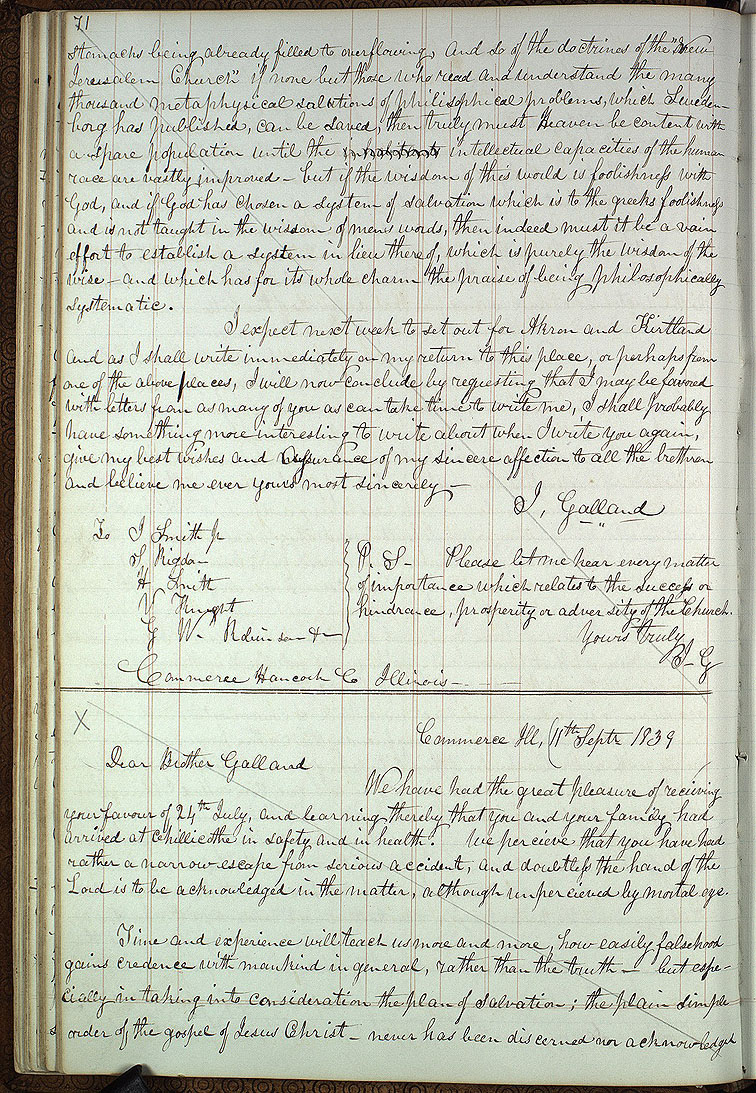 71
stomachs being already filled to overflowing, and so of the doctrines of the "New
Jerusalem Church" if none but those who read and understand the many
thousand metaphysical solutions of philisophical problems, which Sweden-
borg has published, can be saved, then truly must Heaven be content with
a spare population until the intellectual capacities of the human
race are vastly improved - but if the wisdom of this world is foolishness with
God, and if God has chosen a system of salvation which is to the greeks foolishness
and is not taught in the wisdom of men's words, then indeed must it be a vain
effort to establish a system in lieu thereof, which is purely the wisdom of the
wise - and which has for its whole charm the praise of being philosophically
systematic.
I expect next week to set out for Akron and Kirtland
and as I shall write immediately on my return to this place, or perhaps from
one of the above places, I will now conclude by requesting that I may be favored
with letters from as many of you as can take time to write me, I shall probably
have something more interesting to write about when I write you again,
give my best wishes and assurance of my sincere affection to all the brethren
and believe me ever yours most sincerely -
I, Galland
To J Smith Jr
S, Rigdon
H Smith
V Knight
G W. Robinson &
P. S- Please let me hear every matter
of importance which relates to the success or
hindrance, prosperity or adversity of the Church.
Yours truly
I- G
Commerce Hancock Co Illinois -
X
Commerce Ill, (11th Septr 1839
Dear Brother Galland
We have had the great pleasure of recieving
your favour of 24th July, and learning thereby that you and your family had
arrived at Chillicothe in safety and in health. We percieve that you have had
rather a narrow escape from serious accident, and doubtless the hand of the
Lord is to be acknowledged in the matter, although unpercieved by mortal eye.
Time and experience will teach us more and more, how easily falsehood
gains credence with mankind in general, rather than the truth - but espe-
cially in taking into consideration the plan of salvation; the plain simple
order of the gospel of Jesus Christ - never has been discerned nor acknowledged